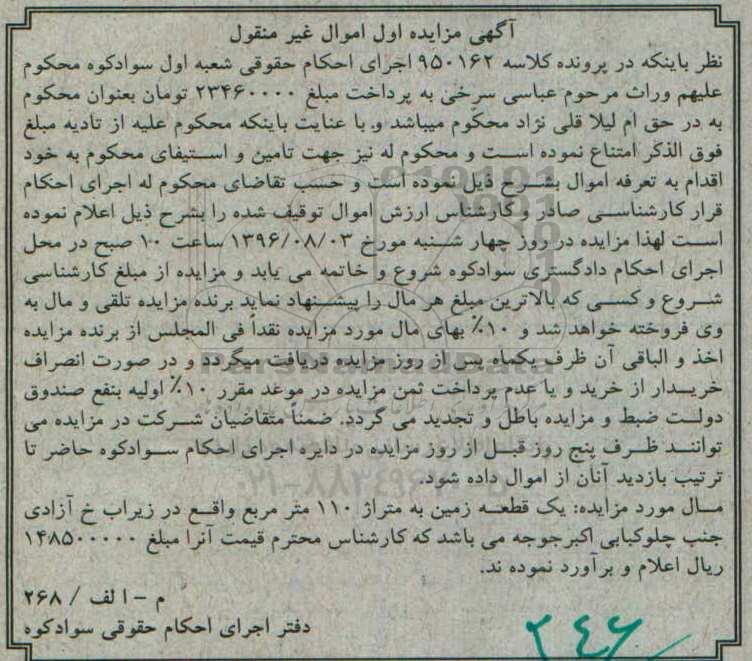 آگهی مزایده اول اموال غیر منقول
نظر باینکه در پرونده کلاسه ۹۵۰۱۶۲ اجرای احکام حقوقی شعبه اول سوادکوه محکوم
علیهم وراث مرحوم عباسی سرخی به پرداخت مبلغ ۲۳۴۶۰۰۰۰ تومان بعنوان محکوم
به در حق ام لیلا قلی نژاد محکوم میباشد و با عنایت باینکه محکوم علیه از تادیه مبلغ
فوق الذکر امتناع نموده است و محکوم له نیز جهت تامین و استیفای محکوم به خود
اقدام به تعرفه اموال بشرح ذیل نموده است و حسب تقاضای محکوم له اجرای احکام
قرار کارشناسی صادر و کارشناس ارزش اموال توقیف شده را بشرح ذیل اعلام نموده
است لهذا مزایده در روز چهار شنبه مورخ ۱۳۹۶/۰۸/۰۳ ساعت ۱۰ صبح در محل
اجرای احکام دادگستری سوادکوه شروع و خاتمه می یابد و مزایده از مبلغ کارشناسی
شروع و کسی که بالاترین مبلغ هر مال را پیشنهاد نماید برنده مزایده تلقی و مال به
وی فروخته خواهد شد و ۱۰٪ بهای مال مورد مزایده نقداً فی المجلس از برنده مزایده
اخذ و الباقی آن ظرف یکماه پس از روز مزایده دریافت میگردد و در صورت انصراف
خریدار از خرید و یا عدم پرداخت ثمن مزایده در موعد مقرر ۱۰٪ اولیه بنفع صندوق
دولت ضبط و مزایده باطل و تجدید می گردد. ضمناً متقاضیان شرکت در مزایده می
توانند ظرف پنج روز قبل از روز مزایده در دایره اجرای احکام سوادکوه حاضر تا
ترتیب بازدید آنان از اموال داده شود.
مال مورد مزایده: یک قطعه زمین به متراژ ۱۱۰ متر مربع واقع در زیراب خ آزادی
جنب چلوکبابی اکبرجوجه می باشد که کارشناس محترم قیمت آنرا مبلغ ۱۴۸۵۰۰۰۰۰
ریال اعلام و برآورد نموده ند.
م - الف / ۲۶۸
دفتر اجرای احکام حقوقی سوادکوه
۲۴۶
ParsNamadData
۰۲۱-۸۸۳۴۹۶۷۰-۵